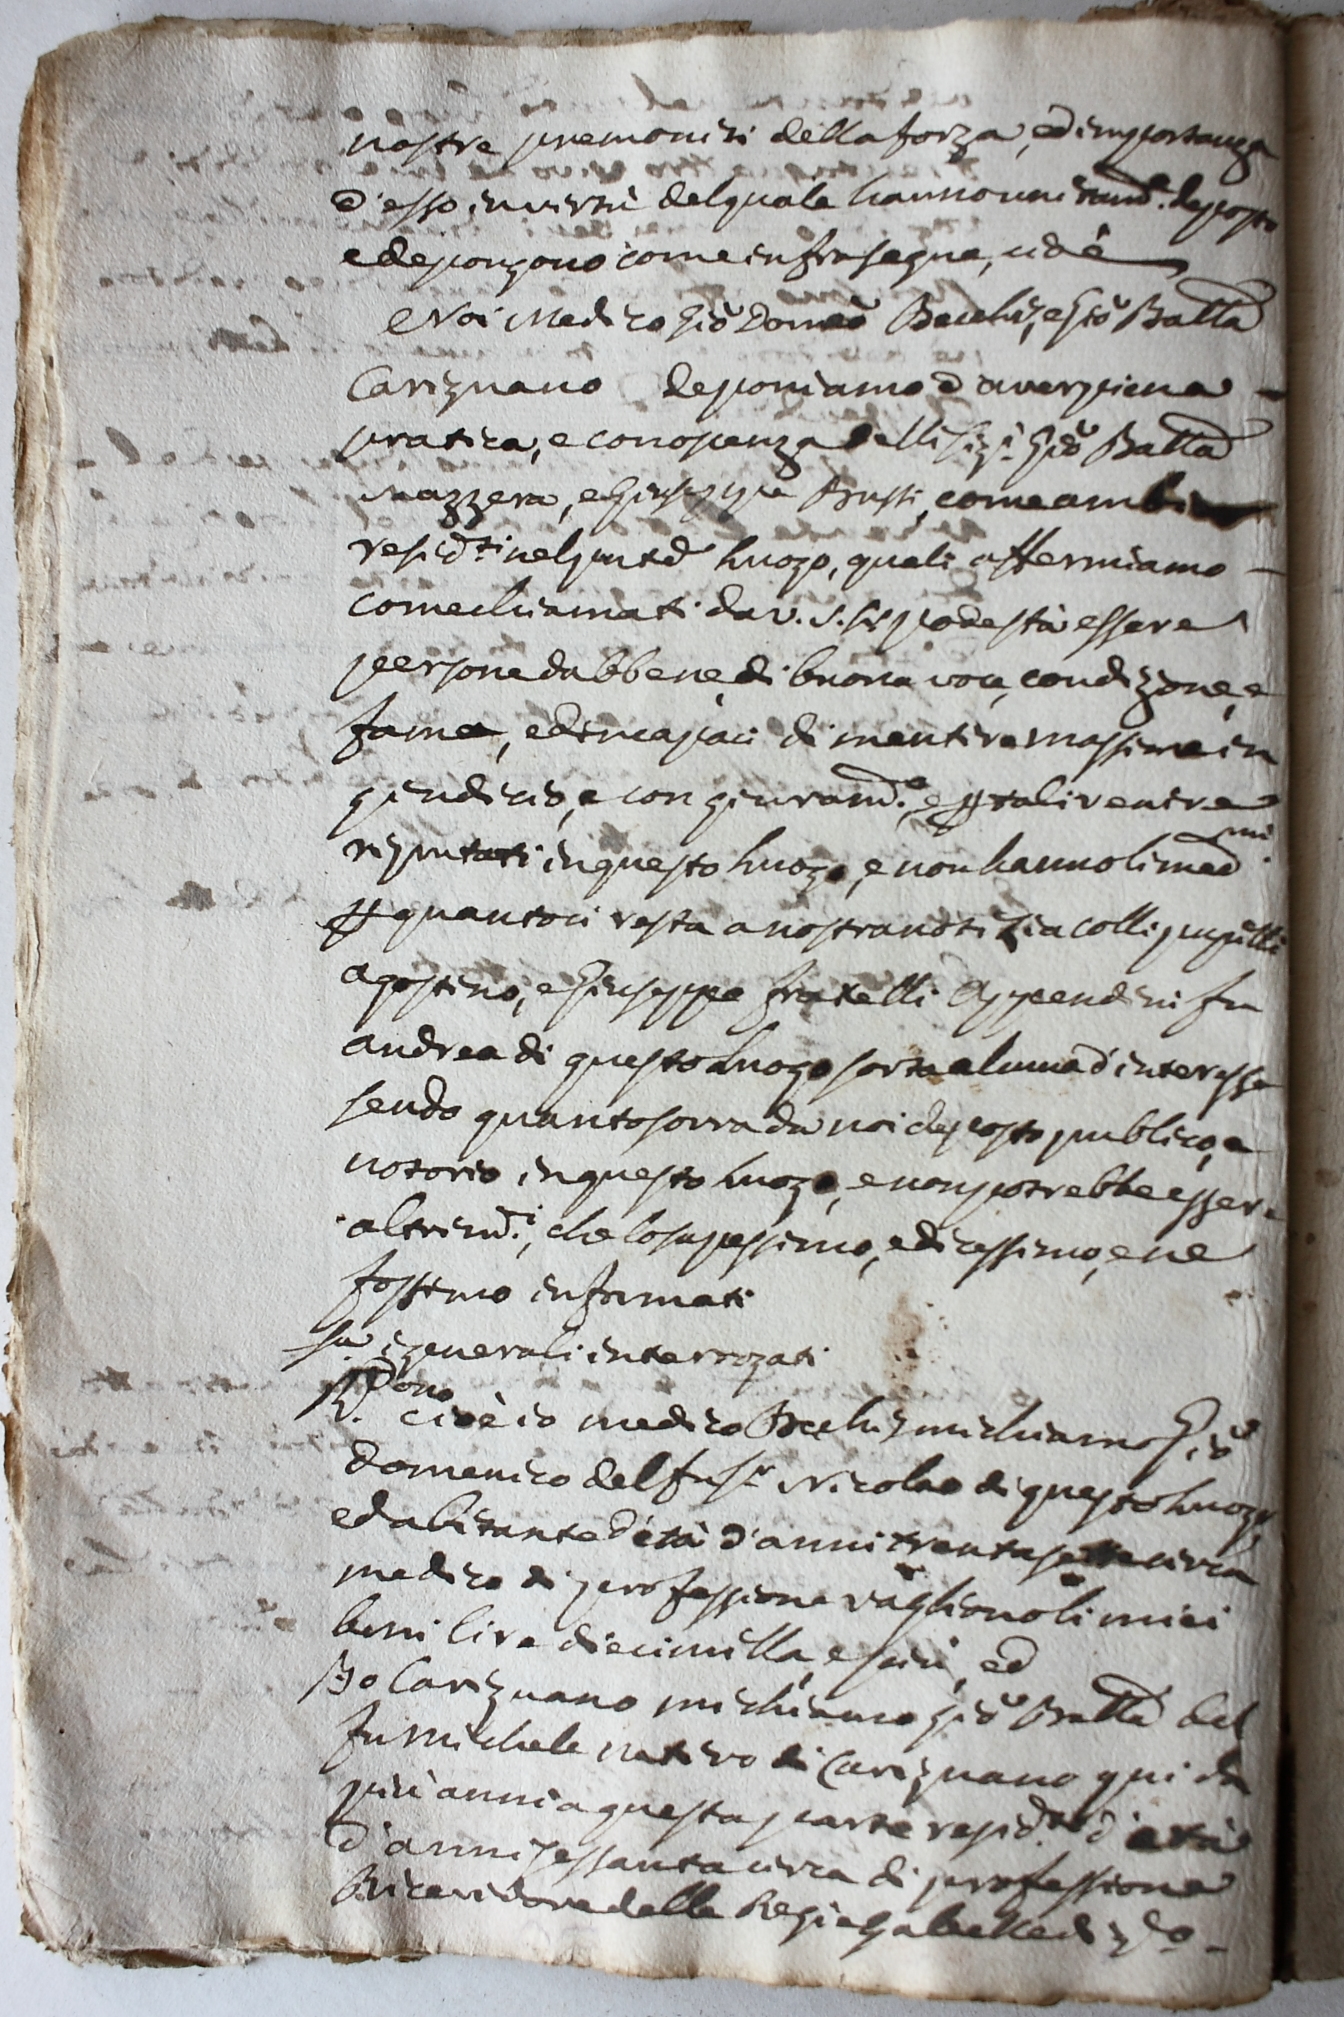 nostre premoniti della forza, ed importanza
d'esso in virtù del quale hanno unitam.e deposto
e depongono come infra segue, cioè
e Noi Medico Gio Domco Bechis, e Gio Batta
Carignano deponiamo d'aver piena
pratica, e conoscenza delli Sig.i Gio Batta
Mazzera, e Giuseppe Brusti, come ambi
resid.ti nel pnted luogo, quali affermiamo
come chiamati da V. S. Sr podestà essere
persone dabbene, di buona voce, condizione, e
fama, ed incapaci di mentire massime in
giudicio, e con giuram.e, e p tali venire
reputati in questo luogo, e non hanno li med.mi
p quanto ci resta a nostra notizia colli pupilli
agostino, e Giuseppe fratelli Appendini fu
andrea di questo luogo sorta alcuna d'interesse
sendo quanto sovra da noi deposto publico, e
notorio in questo luogo, e non potrebbe esser
altrim.i, che lo sapessimo, e dicessimo, e ne
fossimo informati
Su i generali interrogati
R.dono
R. cioè io medico Bechis mi chiamo Gio
Domenico del fu Sr Nicolao di questo luogo,
ed abitante d'età d'anni trenta sette circa
medico di professione vagliono li miei
beni lire diecimilla, e più, ed
Io Carignano mi chiamo Gio Batta del
fu Michele nativo di Carignano qui da
più anni a questa parte resid.te d'età
d'anni sessanta circa di professione
Ricevidore delle Regie Gabelle di